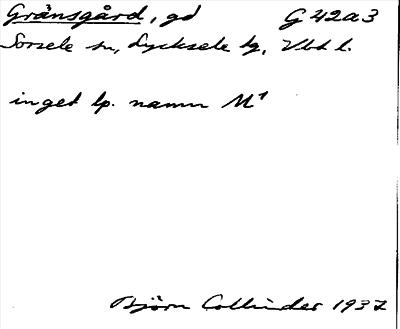 Gränsgård, gd G 42a3
Sorsele sn, Lycksele lg, Vbd l.
inget lp. namn M¹
Björn Collinder 1937